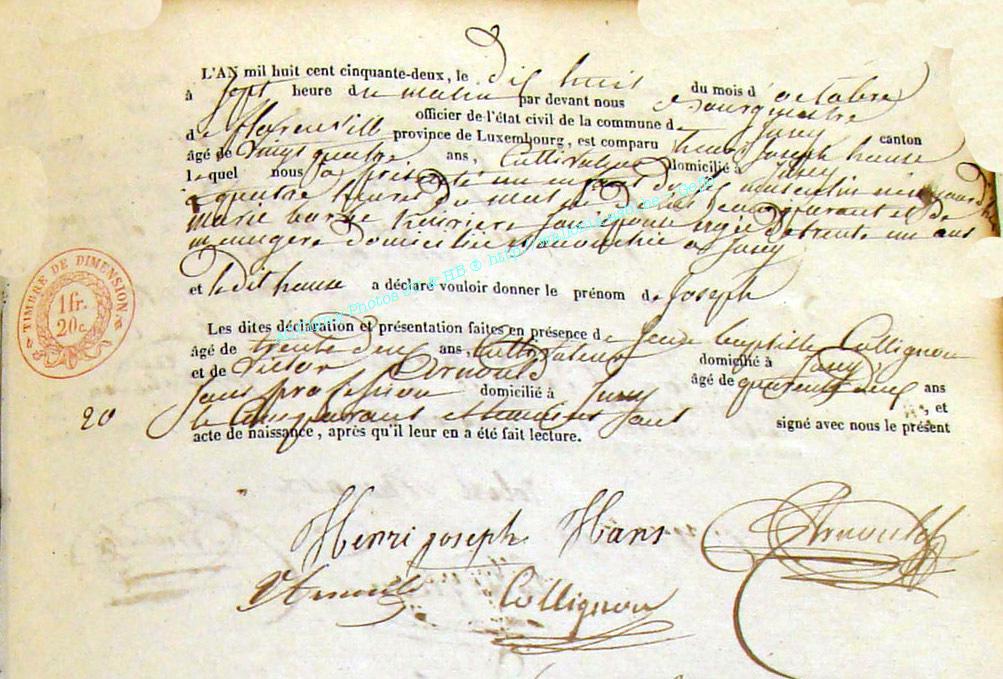 L'AN mil huit cent cinquante-deux, le dix huit du mois d'octobre
à sept heure du matin par devant nous Bourgmestre
officier de l'état civil de la commune de Jusey canton
de florenville province de Luxembourg, est comparu henri Joseph hause
âgé de vingt quatre ans, Cultivateur domicilié à Jusey
lequel nous a présenté un enfant du sexe masculin né aujourd'hui
à quatre heures du matin de lui comparant et de
Marie barbe son épouse agée de trente un ans
menagere domiciliée à Jusey
et le dit hause a déclaré vouloir donner le prénom de Joseph
Les dites déclaration et présentation faites en présence de Jean baptiste Collignon
âgé de trente deux ans Cultivateur domicilié à Jusey
et de Victor Arnould âgé de quarante cinq ans
sans profession domicilié à Jusey, et
le Comparant et temoins sont signé avec nous le présent
acte de naissance, après qu'il leur en a été fait lecture.
TIMBRE DE DIMENSION
1 fr.
20 c.
20
Henri joseph Hans Arnould
V Arnould Collignon